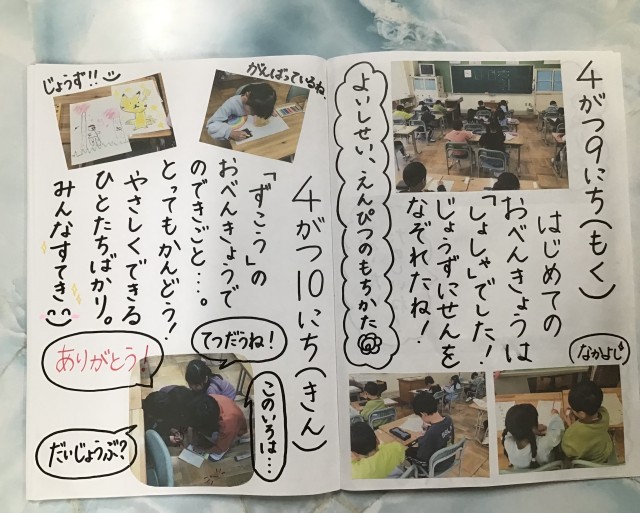 4がつ9にち(もく)
はじめての
おべんきょうは
「しょしゃ」でした!
じょうずにせんを
なぞれたね!
よいしせい、えんぴつのもちかた
なかよし
4がつ10にち(きん)
「ずこう」の
おべんきょうで
のできごと…。
とってもかんどう!
やさしくできる
ひとたちばかり。
みんなすてき
がんばっているね。
じょうず!!
てつだうね!
このいろは…
ありがとう!
だいじょうぶ?